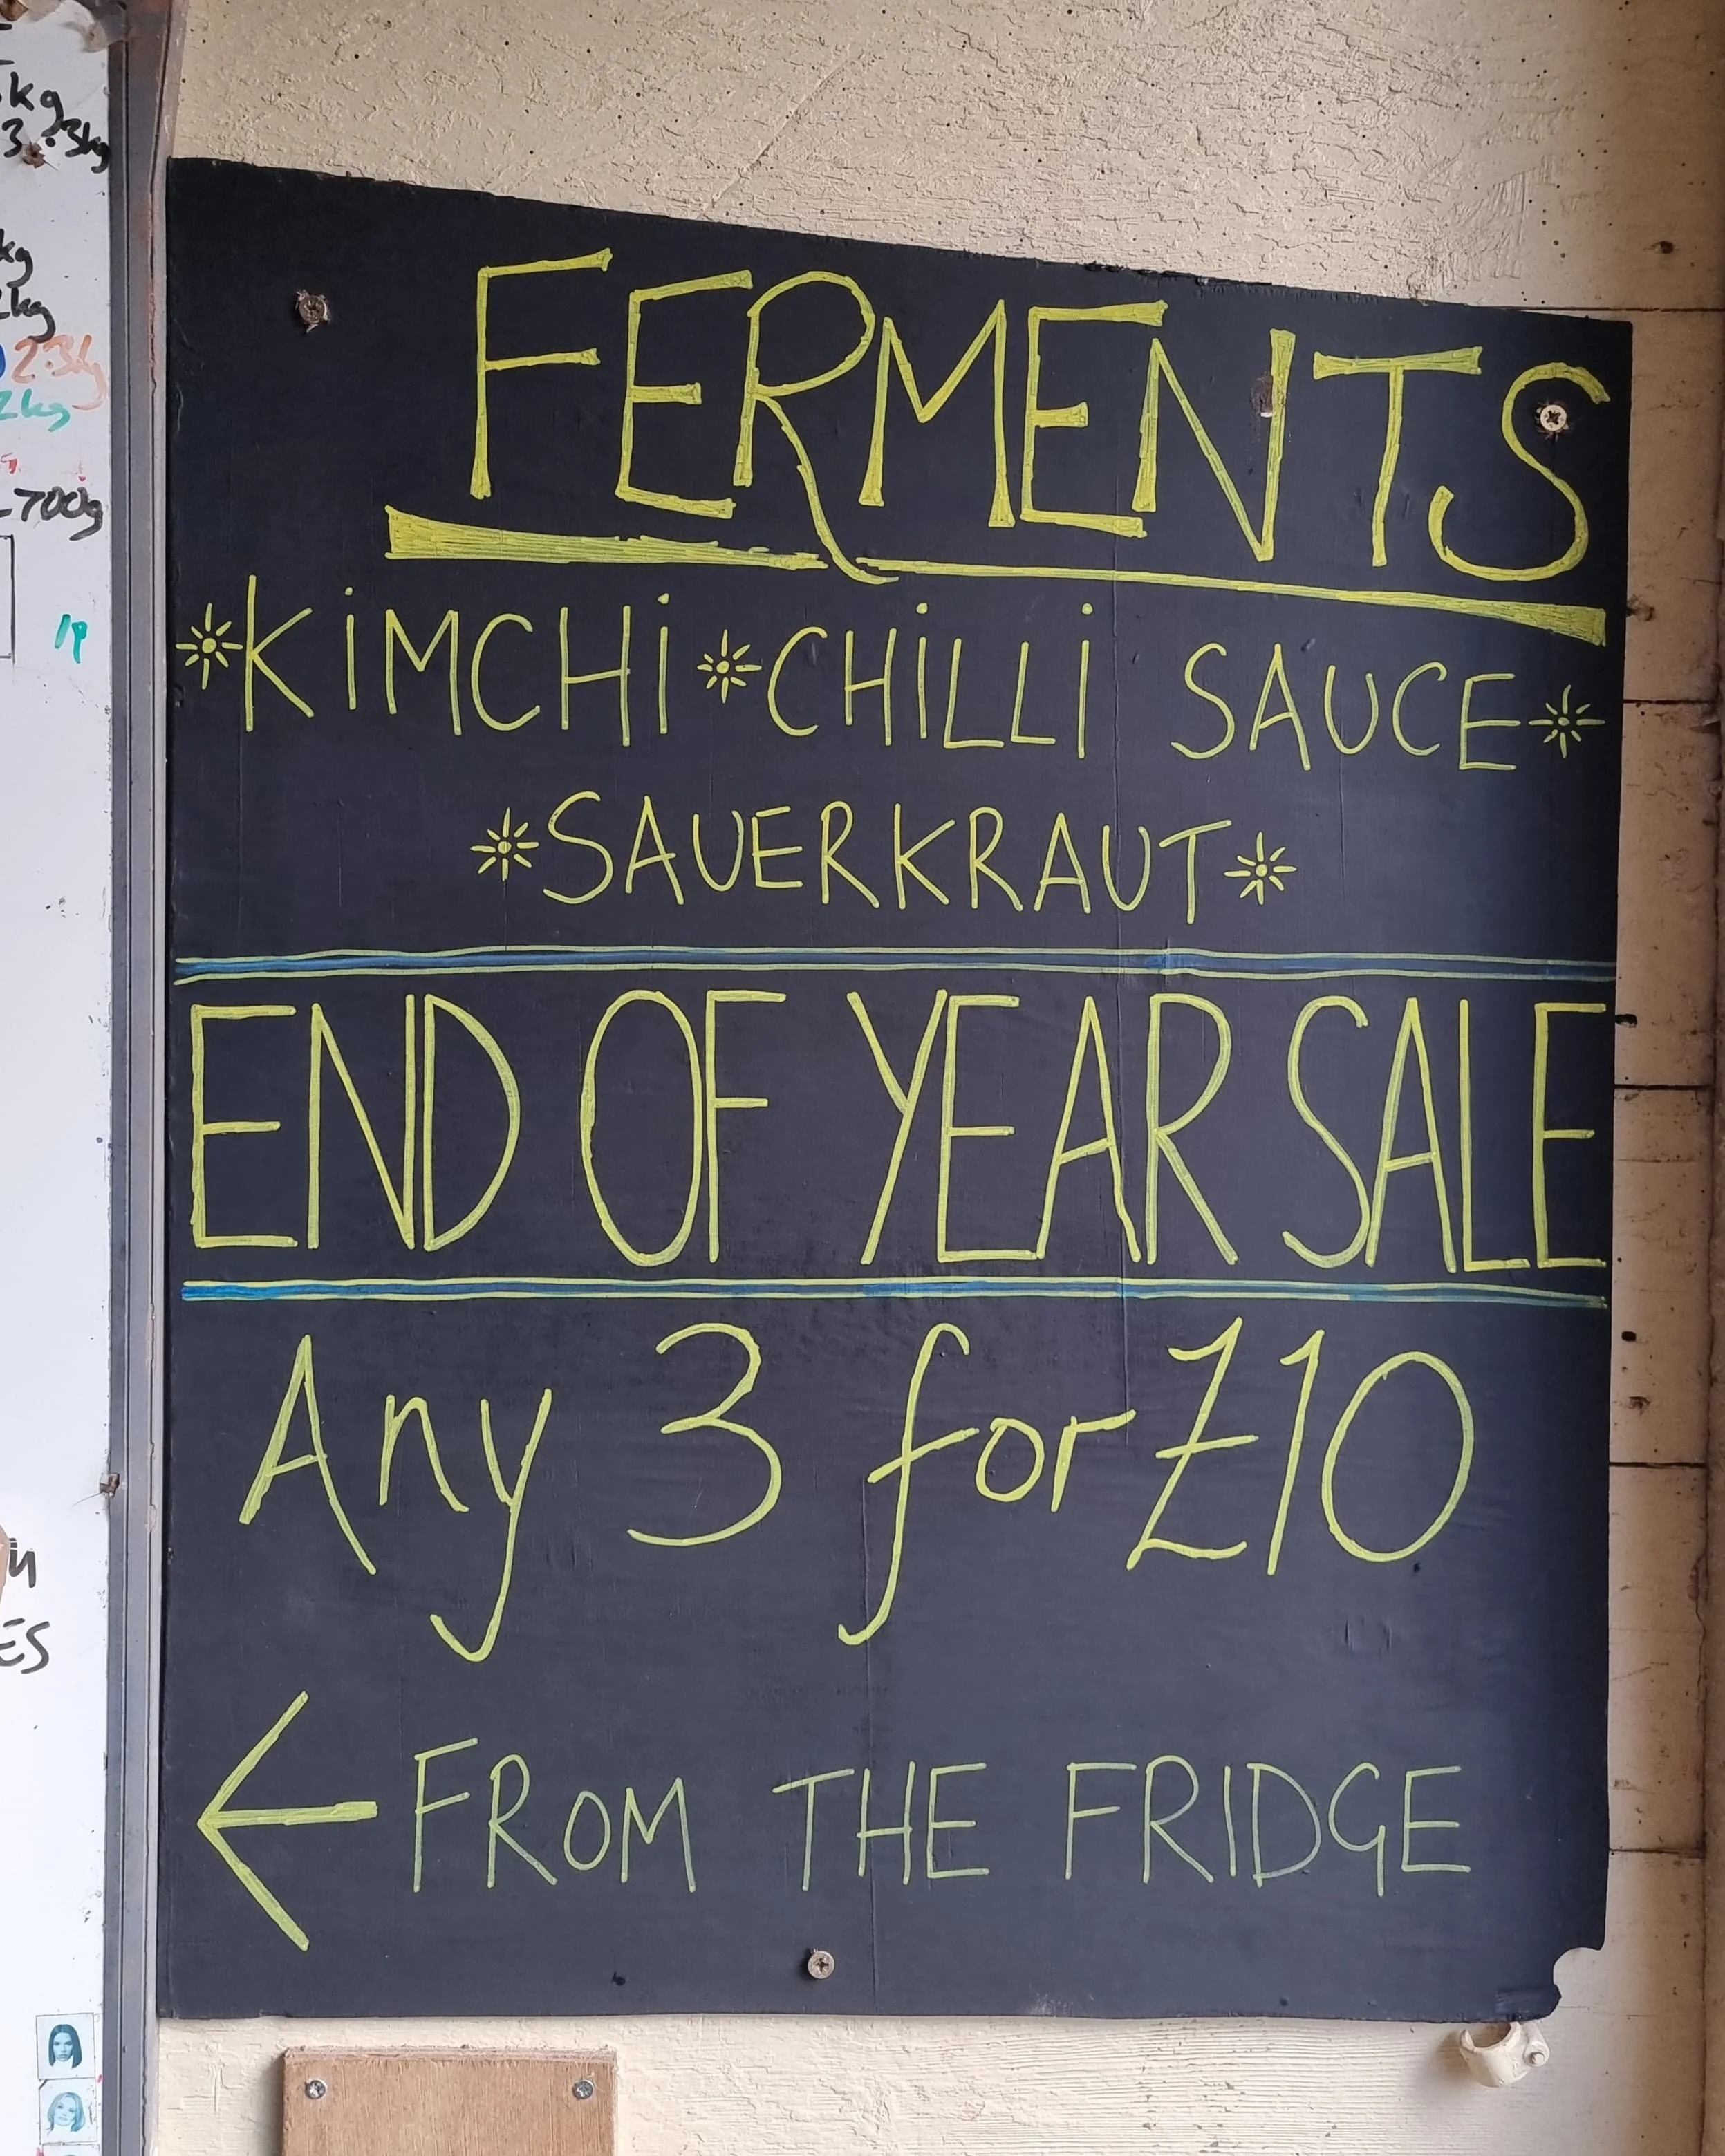 FERMENTS
*KiMCHi*CHiLLi SAUCE*
*SAUERKRAUT*
END OF YEAR SALE
Any 3 for £10
← FROM THE FRIDGE
kg
3 .3kg
kg
2kg
23kg
2kg
-700g
1P
ES